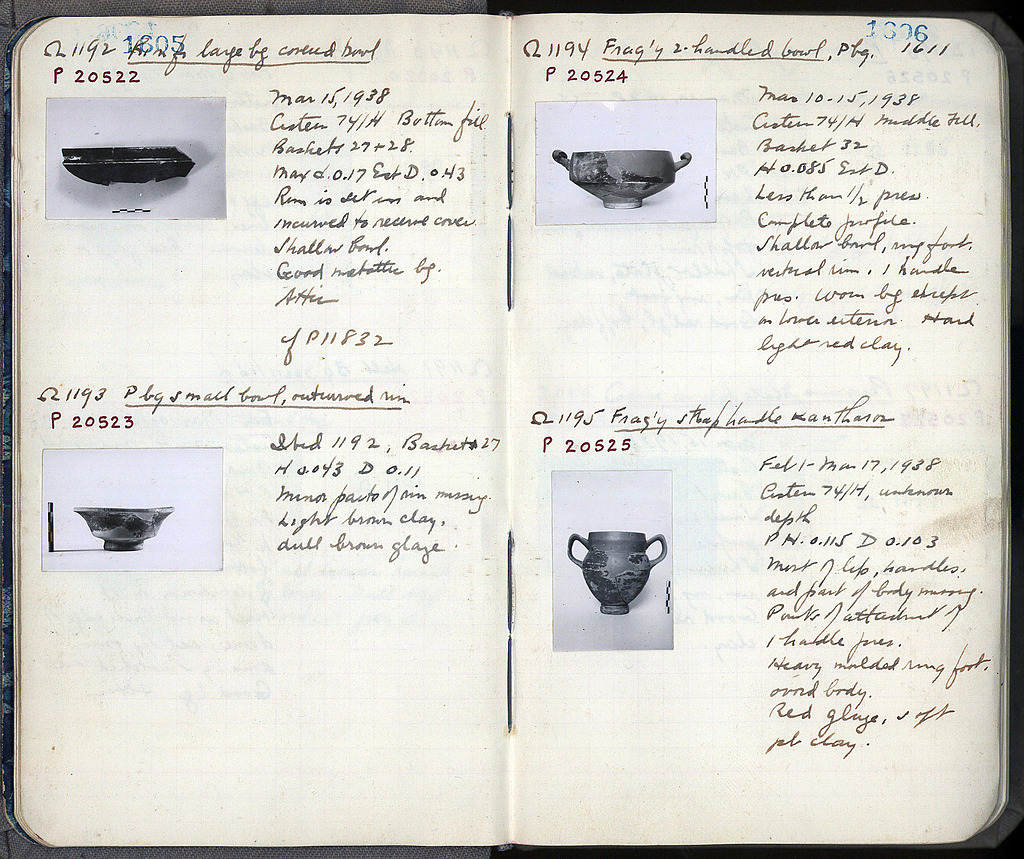 1605
Ω 1192 large bg covered bowl
P 20522
Mar 15, 1938
Cistern 74/H Bottom fill.
Baskets 27 + 28
Max d. 0.17 Est D. 0.43
Rim is set in and
incurved to receive cover.
Shallow bowl.
Good metallic bg.
Attic
cf P11832
Ω 1193 P bg small bowl, outcurved rim
P 20523
Ibid 1192, Basket 27
H 0.043 D 0.11
Minor parts of rim missing.
Light brown clay,
dull brown glaze.
1606
Ω 1194 Frag'y 2-handled bowl, P bg. 1611
P 20524
Mar 10-15, 1938
Cistern 74/H Middle Fill.
Basket 32
H 0.085 Est D.
Less than 1/2 pres.
Complete profile.
Shallow bowl, ring foot,
vertical rim. 1 handle
pres. Worn bg except
on lower exterior. Hard
light red clay.
Ω 1195 Frag'y strap handle Kantharos
P 20525
Feb 1 - Mar 17, 1938
Cistern 74/H, unknown
depth
P.H. 0.115 D 0.103
Most of lip, handles,
and part of body missing.
Points of attachmt of
1 handle pres.
Heavy molded ring foot,
ovoid body.
Red glaze, soft
clay.